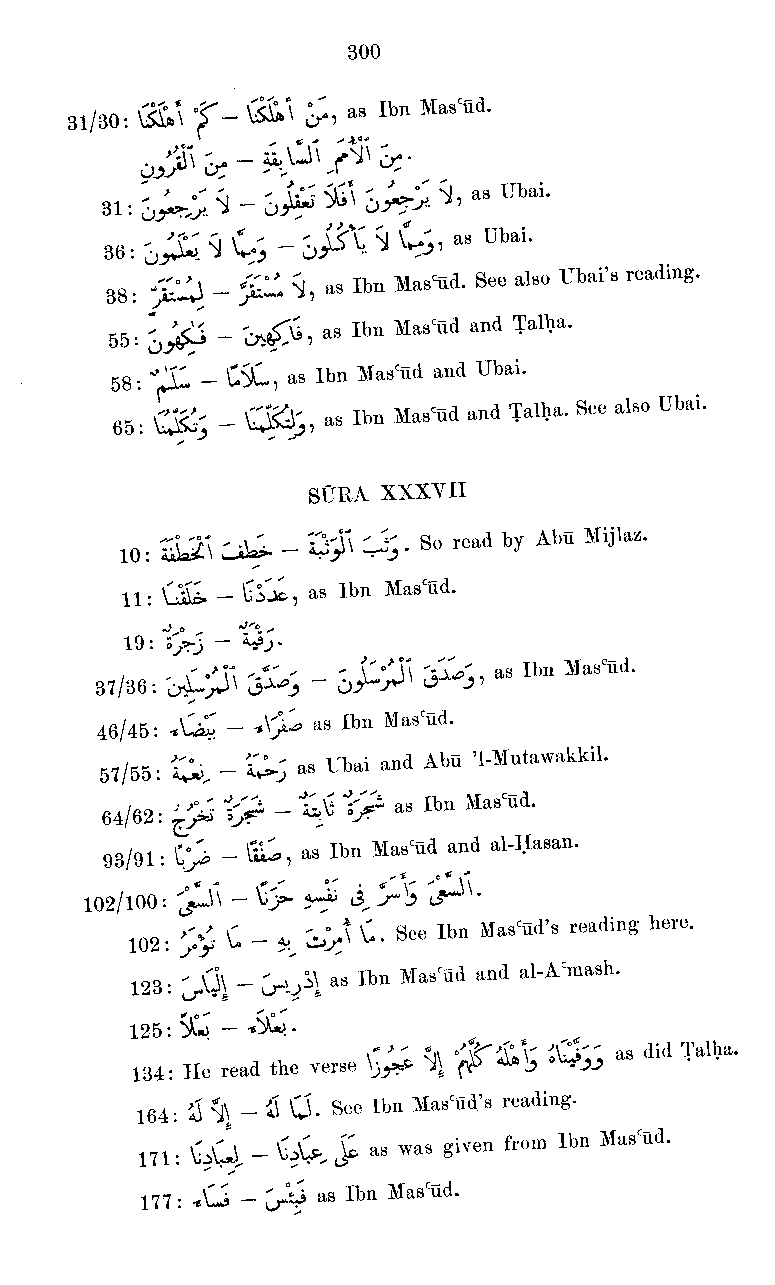 300
31/30: كَمْ أَهْلَكْنَا – مَنْ أَهْلَكْنَا, as Ibn Masʿūd.
مِنَ ٱلْقُرُونِ – مِنَ ٱلْأُمَمِ ٱلسَّابِقَةِ.
31: لَا يَرْجِعُونَ – لَا يَرْجِعُونَ أَفَلَا تَعْقِلُونَ, as Ubai.
36: وَمِمَّا لَا يَعْلَمُونَ – وَمِمَّا لَا يَأْكُلُونَ, as Ubai.
38: لِمُسْتَقَرٍّ – لَا مُسْتَقَرَّ, as Ibn Masʿūd. See also Ubai's reading.
55: فَٰكِهُونَ – فَاكِهِينَ, as Ibn Masʿūd and Ṭalḥa.
58: سَلَٰمٌ – سَلَامًا, as Ibn Masʿūd and Ubai.
65: وَتُكَلِّمُنَا – وَلِتُكَلِّمَنَا, as Ibn Masʿūd and Ṭalḥa. See also Ubai.
SŪRA XXXVII
10: خَطِفَ ٱلْخَطْفَةَ – وَثَبَ ٱلْوَثْبَةَ. So read by Abū Mijlaz.
11: خَلَقْنَا – عَدَدْنَا, as Ibn Masʿūd.
19: زَجْرَةٌ – زَقْيَةٌ.
37/36: وَصَدَّقَ ٱلْمُرْسَلِينَ – وَصَدَقَ ٱلْمُرْسَلُونَ, as Ibn Masʿūd.
46/45: بَيْضَاءَ – صَفْرَاءَ as Ibn Masʿūd.
57/55: نِعْمَةُ – رَحْمَةُ as Ubai and Abū 'l-Mutawakkil.
64/62: شَجَرَةٌ تَخْرُجُ – شَجَرَةٌ ثَابِتَةٌ as Ibn Masʿūd.
93/91: ضَرْبًا – صَفْقًا, as Ibn Masʿūd and al-Ḥasan.
102/100: ٱلسَّعْىَ – ٱلسَّعْىَ وَأَسَرَّ فِى نَفْسِهِ حَزَنًا.
102: مَا تُؤْمَرُ – مَا أُمِرْتَ بِهِ. See Ibn Masʿūd's reading here.
123: إِلْيَاسَ – إِدْرِيسَ as Ibn Masʿūd and al-Aʿmash.
125: بَعْلًا – بَعْلَاءَ.
134: He read the verse وَوَفَّيْنَاهُ وَأَهْلَهُ كُلَّهُمْ إِلَّا عَجُوزًا as did Ṭalḥa.
164: إِلَّا لَهُ – لَمَا لَهُ. See Ibn Masʿūd's reading.
171: لِعِبَادِنَا – عَلَى عِبَادِنَا as was given from Ibn Masʿūd.
177: فَسَاءَ – فَبِئْسَ as Ibn Masʿūd.